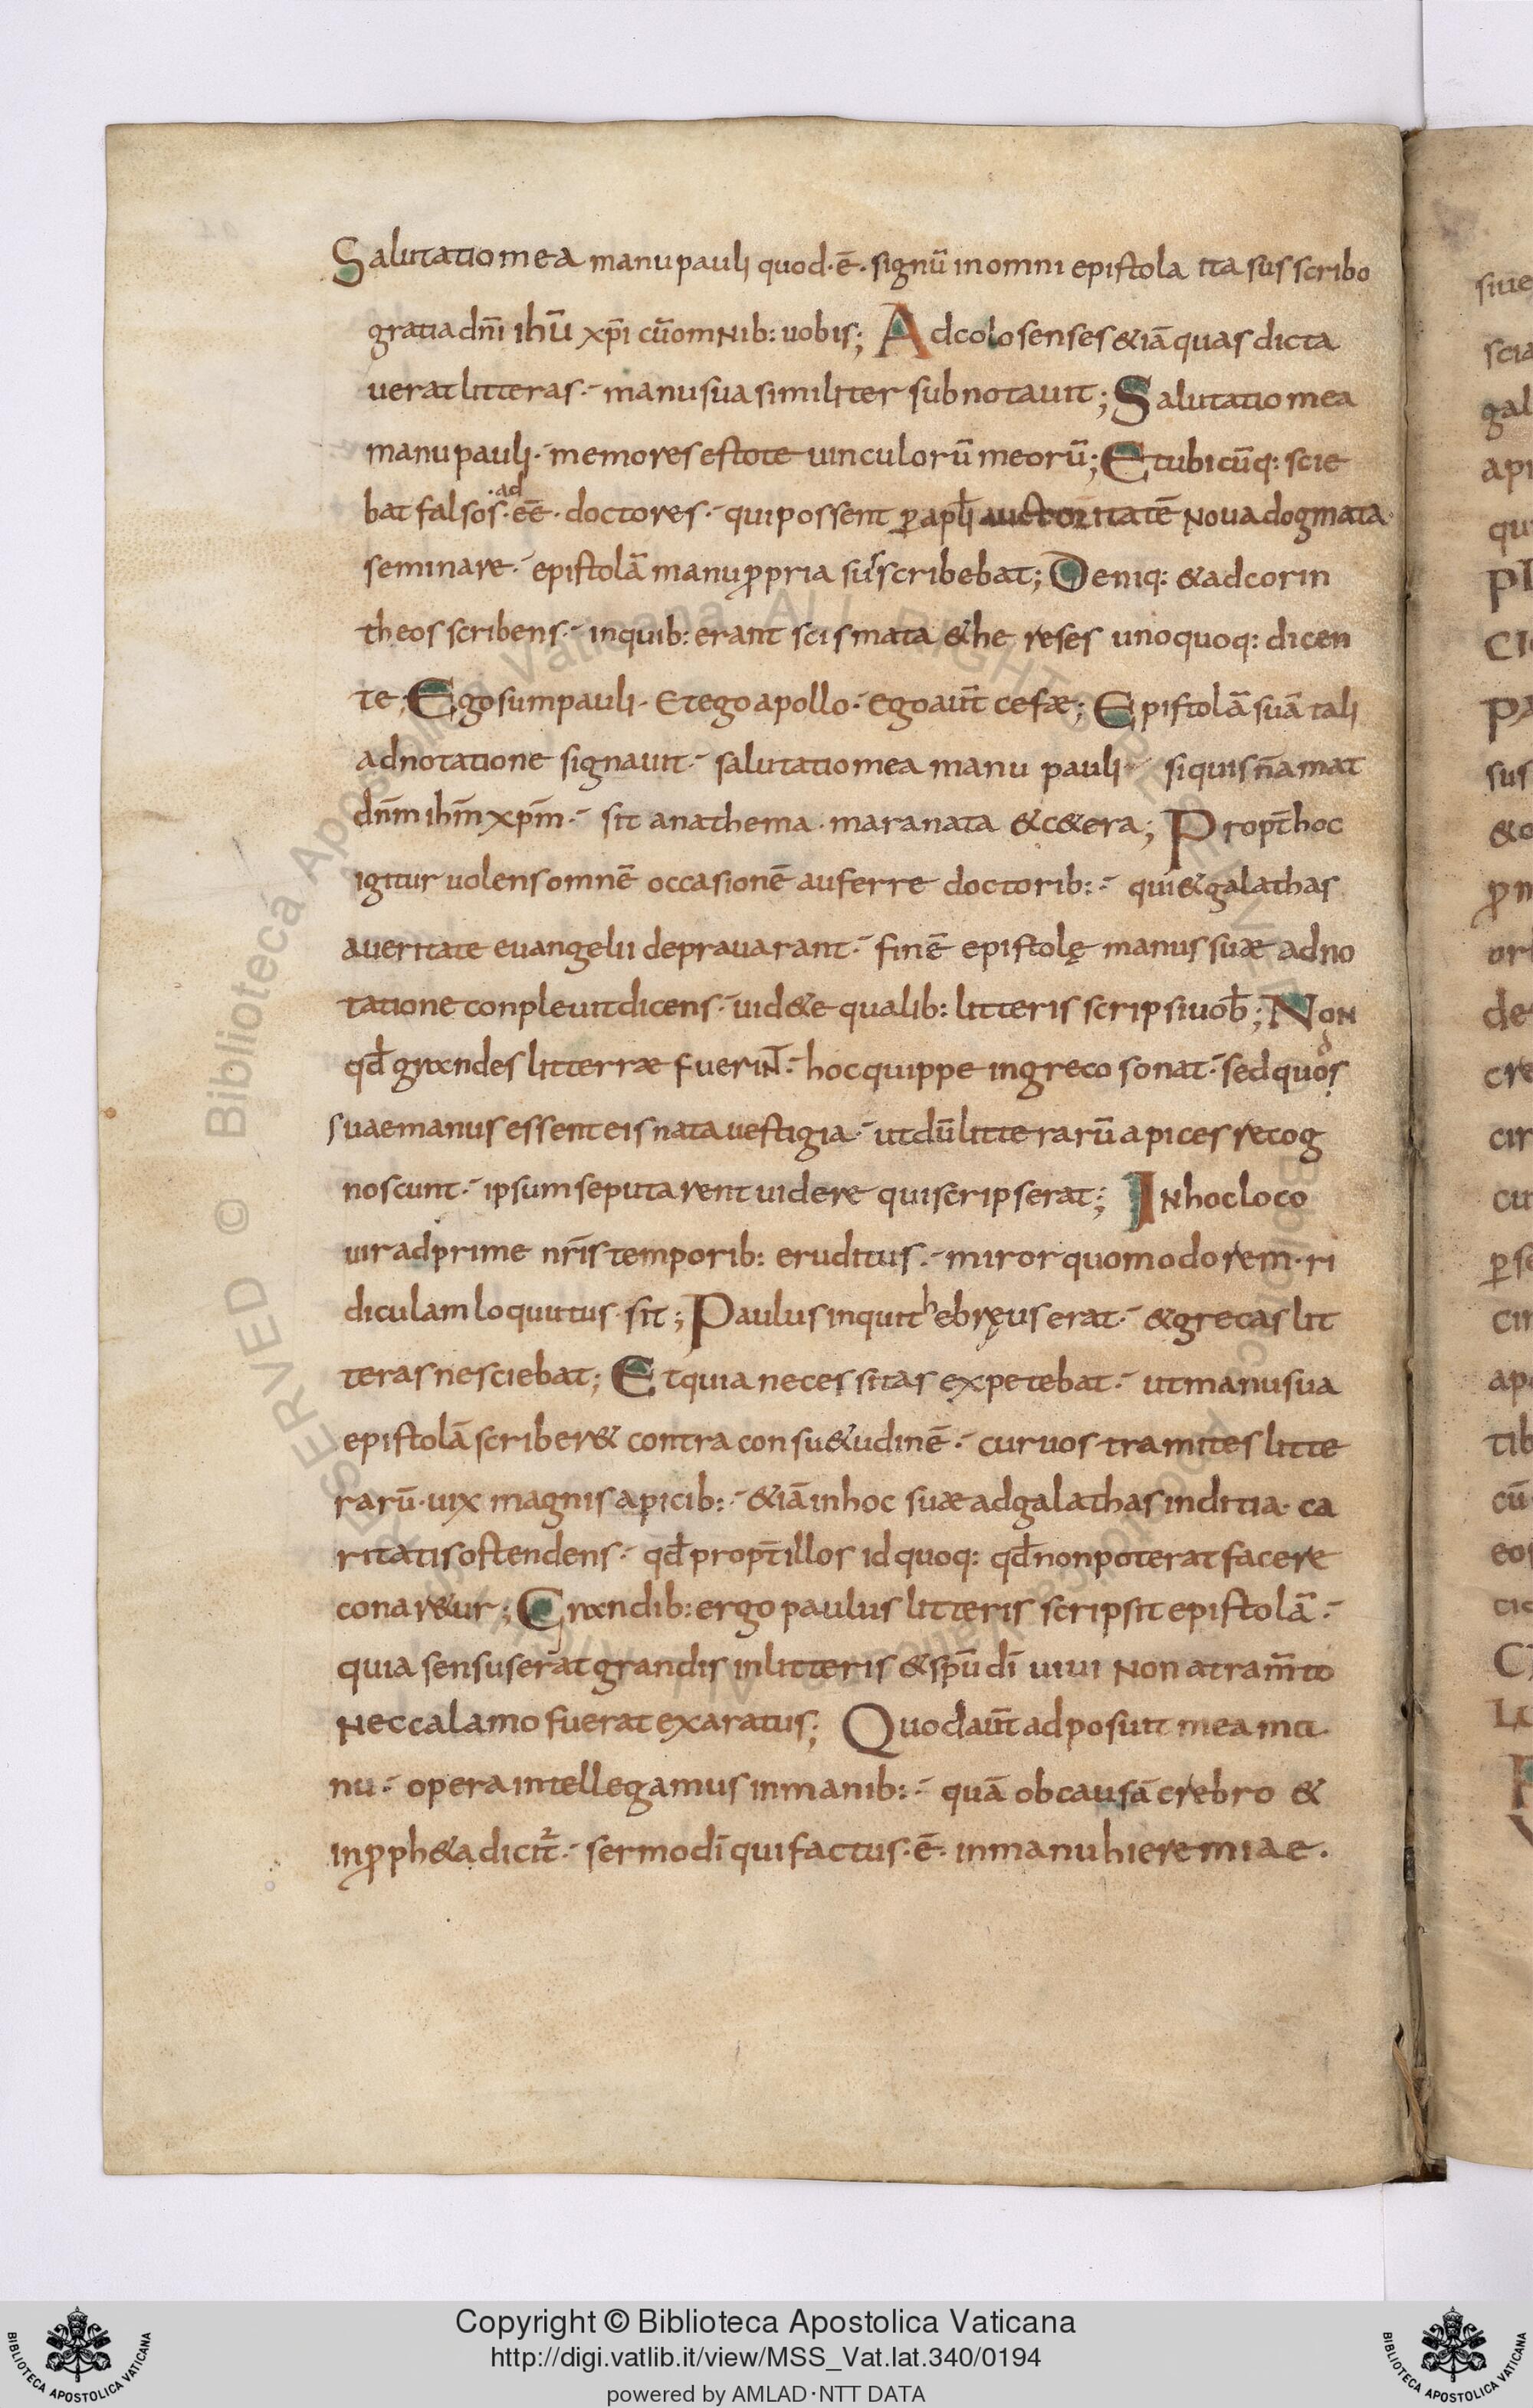 Salutatio mea manu pauli quod · ē · signū in omni epistola ita susscribo
gratia dn̄i ihū xp̄i cū omnib: uobis; Ad colosenses & iā quas dicta
uerat litteras ·- manu sua similiter subnotauit; Salutatio mea
manu pauli ·- memores estote uinculorū meorū; Et ubicūq: scie
bat falsos · ad eē · doctores ·- qui possent ꝑ apl̄i auctoritatē noua dogmata
seminare ·- epistolā manu ꝓpria susscribebat; Deniq: & ad corin
theos scribens ·- in quib: erant scismata & he reses unoquoq: dicen
te; Ego sum pauli · Et ego apollo · ego aut̄ cefæ; Epistolā suā tali
adnotatione signauit ·- salutatio mea manu pauli ·- si quis n̄ amat
dn̄m ihm̄ xp̄m ·- sit anathema · maranata & c&era; Propt̄ hoc
igitur uolens omnē occasionē auferre doctorib: ·- qui & galathas
a ueritate euangelii deprauarant ·- finē epistolę manus suæ adno
tatione conpleuit dicens ·- uid&e qualib: litteris scripsi uob̄; Non
qd̄ grandes litterræ fuerint̄ ·- hoc quippe in greco sonat ·- sed quos d
suae manus essent eis nata uestigia ·- ut dū litterarū apices recog
noscunt ·- ipsum se putarent uidere qui scripserat; In hoc loco
uir adprime nr̄is temporib: eruditus ·- miror quomodo rem · ri
diculam loquutus · sit; Paulus inquit hebręus erat ·- & grecas lit
teras nesciebat; Et quia necessitas expetebat ·- ut manu sua
epistolā scriber& contra consu&udinē ·- curuos tramites litte
rarū · uix magnis apicib: ·- & iā in hoc suæ ad galathas inditia · ca
ritatis ostendens ·- qd̄ propt̄ illos id quoq: qd̄ non poterat facere
conar&ur; Grandib: ergo paulus litteris scripsit epistolā ·-
quia sensus erat grandis in litteris & spū dī uiui non atram̄to
nec calamo fuerat exaratus; Quod aut̄ adposuit mea ma
nu ·- opera intellegamus in manib: ·- quā ob causā crebro &
in ꝓph&a dicit̄ ·- sermo dī qui factus · ē · in manu hieremiae ·
siue
scia
gal
api
qui
sus
&
de
cre
cir
cu
ꝑsc
cir
ap
tib
cū
eos
Copyright © Biblioteca Apostolica Vaticana
http://digi.vatlib.it/view/MSS_Vat.lat.340/0194
powered by AMLAD·NTT DATA
BIBLIOTECA APOSTOLICA VATICANA
BIBLIOTECA APOSTOLICA VATICANA